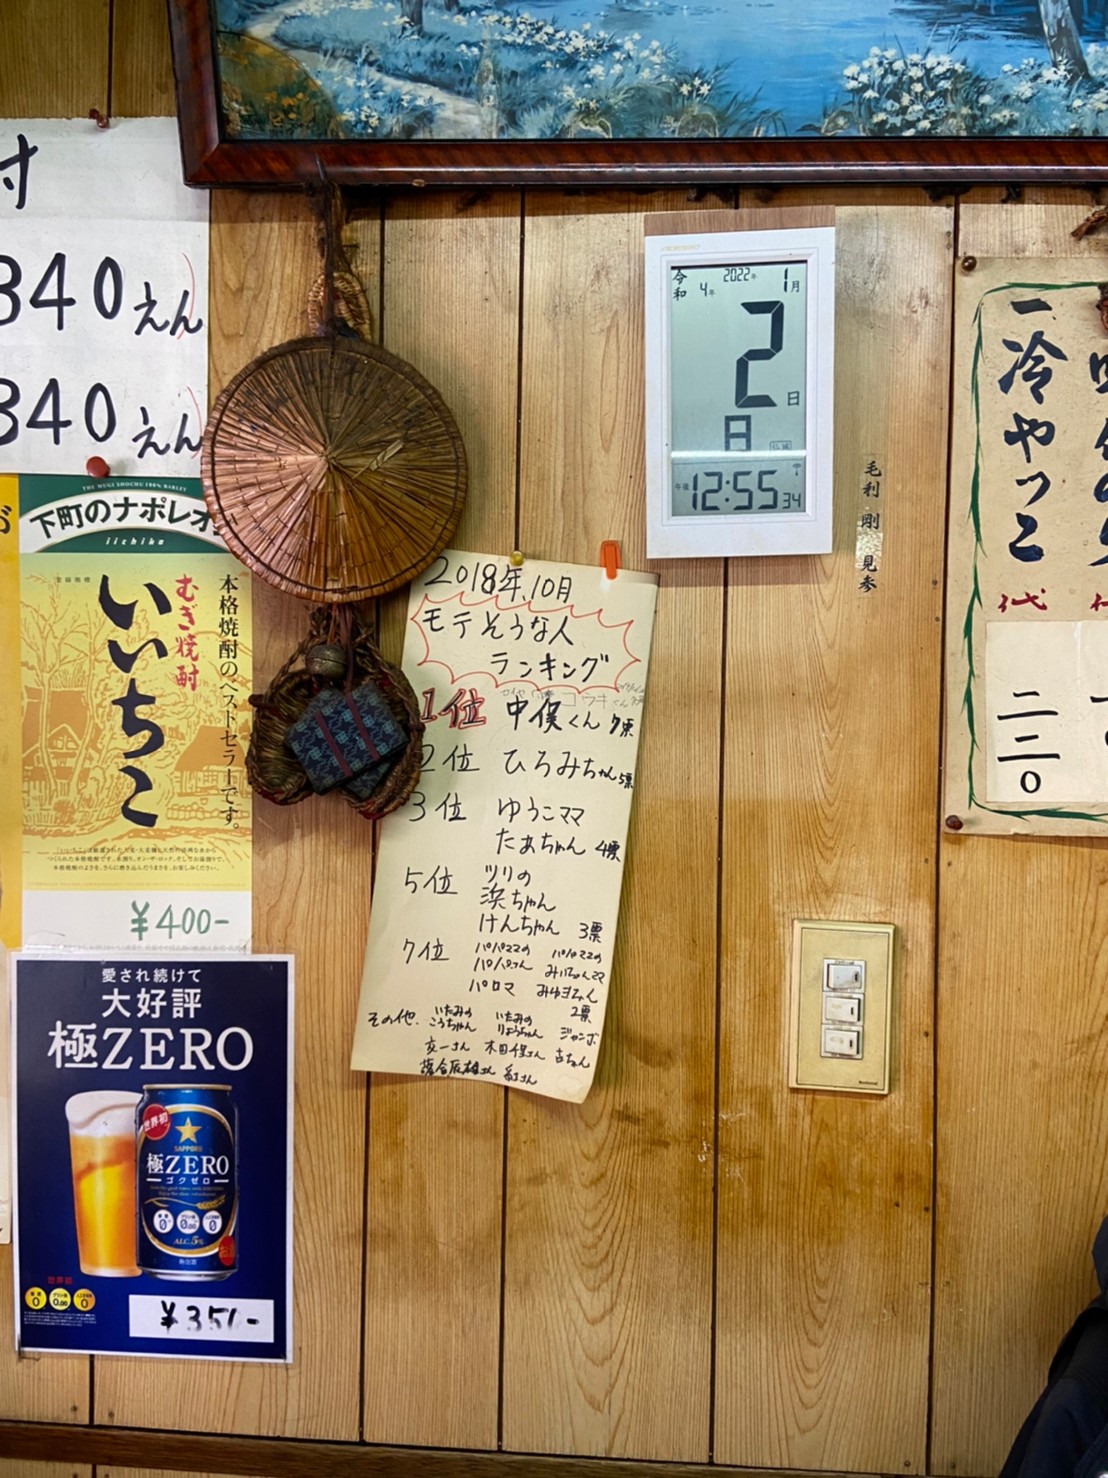 付
340えん
340えん
THE MUGI SHOCHU 100% BARLEY
下町のナポレオ
iichiko
本格焼酎のベストセラーです。
むぎ焼酎
いいちこ
¥400-
愛され続けて
大好評
極ZERO
世界初
SAPPORO
極ZERO
ゴクゼロ
ALC.5%
発泡酒
お酒
世界初
0
0.00
0
¥351-
2018年.10月
モテそうな人
ランキング
1位 中俣くん 7票
2位 ひろみちゃん 5票
3位 ゆうこママ
たあちゃん 4票
5位 ツリの
浜ちゃん
けんちゃん 3票
7位 パパママの パパママの
みいちゃんママ
パロマ みゆきちゃん
2票
その他. いたみの いたみの
こうちゃん りょうちゃん ジャンボ
古ちゃん
令和4年 2022年 1月
2日
日
仏滅
午後 12:55 34
毛利 剛 見参
一冷やっこ
代
二二〇
National